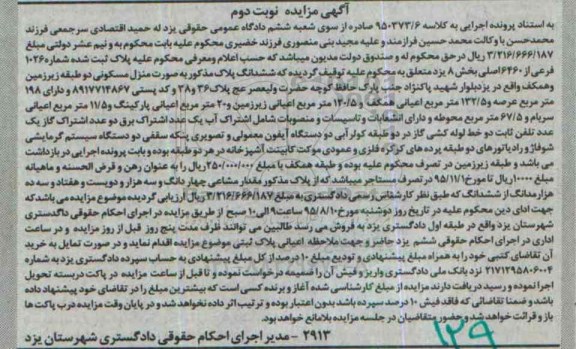 آگهی مزایده نوبت دوم
به استناد پرونده اجرایی به کلاسه ۹۵۰۳۷۳/۶ صادره از سوی شعبه ششم دادگاه عمومی حقوقی یزد له حمید اقتصادی سرجمعی فرزند
محمدحسن با وکالت محمد حسین فرازمند و علیه مجید بنی منصوری فرزند خضیری محکوم علیه بابت محکوم به و نیم عشر دولتی مبلغ
۳/۲۱۶/۶۶۶/۱۸۷ ریال در حق محکوم له و صندوق دولت مدیون میباشد که حسب اعلام ومعرفی محکوم علیه پلاک ثبت شماره ۱۰۲۶
فرعی از ۶۴۶۰ اصلی بخش ۸ یزد متعلق به محکوم علیه توقیف گردیده که ششدانگ پلاک مذکور به صورت منزل مسکونی دو طبقه زیرزمین
وهمکف واقع در یزدبلوار شهید پاکنژاد جنب پارک حافظ کوچه حضرت ولیعصر عج پلاک۳۶ و۳۸ و کد پستی ۸۹۱۷۷۱۴۸۶۷ و دارای ۱۹۸
متر مربع عرصه و ۱۳۲/۵ متر مربع اعیانی همکف و ۱۴۰/۵ متر مربع اعیانی زیرزمین و۲۰ متر مربع اعیانی پارکینگ و۱۱/۵ متر اعیانی
سربام و ۶۷/۵ متر مربع محوطه و دارای انشعابات و تاسیسات و منصوبات شامل اشتراک آب یک عدد اشتراک برق دو عدد اشتراک گاز یک
عدد تلفن ثابت دو خط لوله کشی گاز در دو طبقه کولر آبی دو دستگاه آیفون معمولی و تصویری پنکه سقفی دو دستگاه سیستم گرمایشی
شوفاژ و رادیاتورهای دو طبقه پرده های کرکره فلزی و عمودی موکت کابینت آشپزخانه در هر دو طبقه بوده و بابت پرونده اجرایی در بازداشت
می باشد و طبقه زیرزمین در تصرف محکوم علیه بوده و طبقه همکف با مبلغ ۲۵۰/۰۰۰/۰۰۰ ریال را به عنوان رهن و قرض الحسنه و ماهیانه
مبلغ ۱۰۰۰۰ ریال تا مورخ ۹۵/۱۱/۱ در تصرف مستاجر میباشد که از پلاک مذکور مقدار مشاعی چهار دانگ و سه هزار و دویست و هفتاد و سه ده
هزار مدانگ از ششدانگ که طبق نظر کارشناس رسمی دادگستری به مبلغ ۳/۲۱۶/۶۶۶/۱۸۷ ریال ارزیابی گردیده موضوع مزایده می باشد که
جهت ادای دین محکوم علیه در تاریخ روز دوشنبه مورخ ۹۵/۸/۱۰ ساعت ۹ الی ۱۰ صبح از طریق مزایده در اجرای احکام حقوقی دادگستری
شهرستان یزد واقع در طبقه اول دادگستری یزد به فروش می رسد طالبین می توانند ظرف مدت پنج روز قبل از روز مزایده و در ساعت
اداری در اجرای احکام حقوقی ششم یزد حاضر و جهت ملاحظه اعیانی پلاک ثبتی موضوع مزایده اقدام نماید و در صورت تمایل به خرید
آن تقاضای کتبی خود را به همراه مبلغ پیشنهادی و تودیع مبلغ ۱۰ درصد از کل مبلغ پیشنهادی به حساب سپرده دادگستری یزد به شماره
۲۱۷۱۲۹۵۸۰۶۰۰۴ نزد بانک ملی دادگستری واریز و فیش آن را ضمیمه درخواست نموده و تا قبل از ساعت مزایده در پاکت دربسته تحویل
اجرا نموده و رسید دریافت دارند مزایده از مبلغ کارشناسی شده آغاز و برنده کسی است که بیشترین مبلغ را در تقاضای خود پیشنهاد داده
باشد و ضمنا تقاضائی که فاقد فیش ۱۰ درصد سپرده باشد بدون اعتبار بوده و ترتیب اثر داده نخواهد شد و در پایان وقت مزایده درب پاکت ها
باز و قرائت خواهد شد و حضور متقاضیان در جلسه مزایده بلامانع خواهد بود.
۲۹۱۳ - مدیر اجرای احکام حقوقی دادگستری شهرستان یزد
۱۲۹